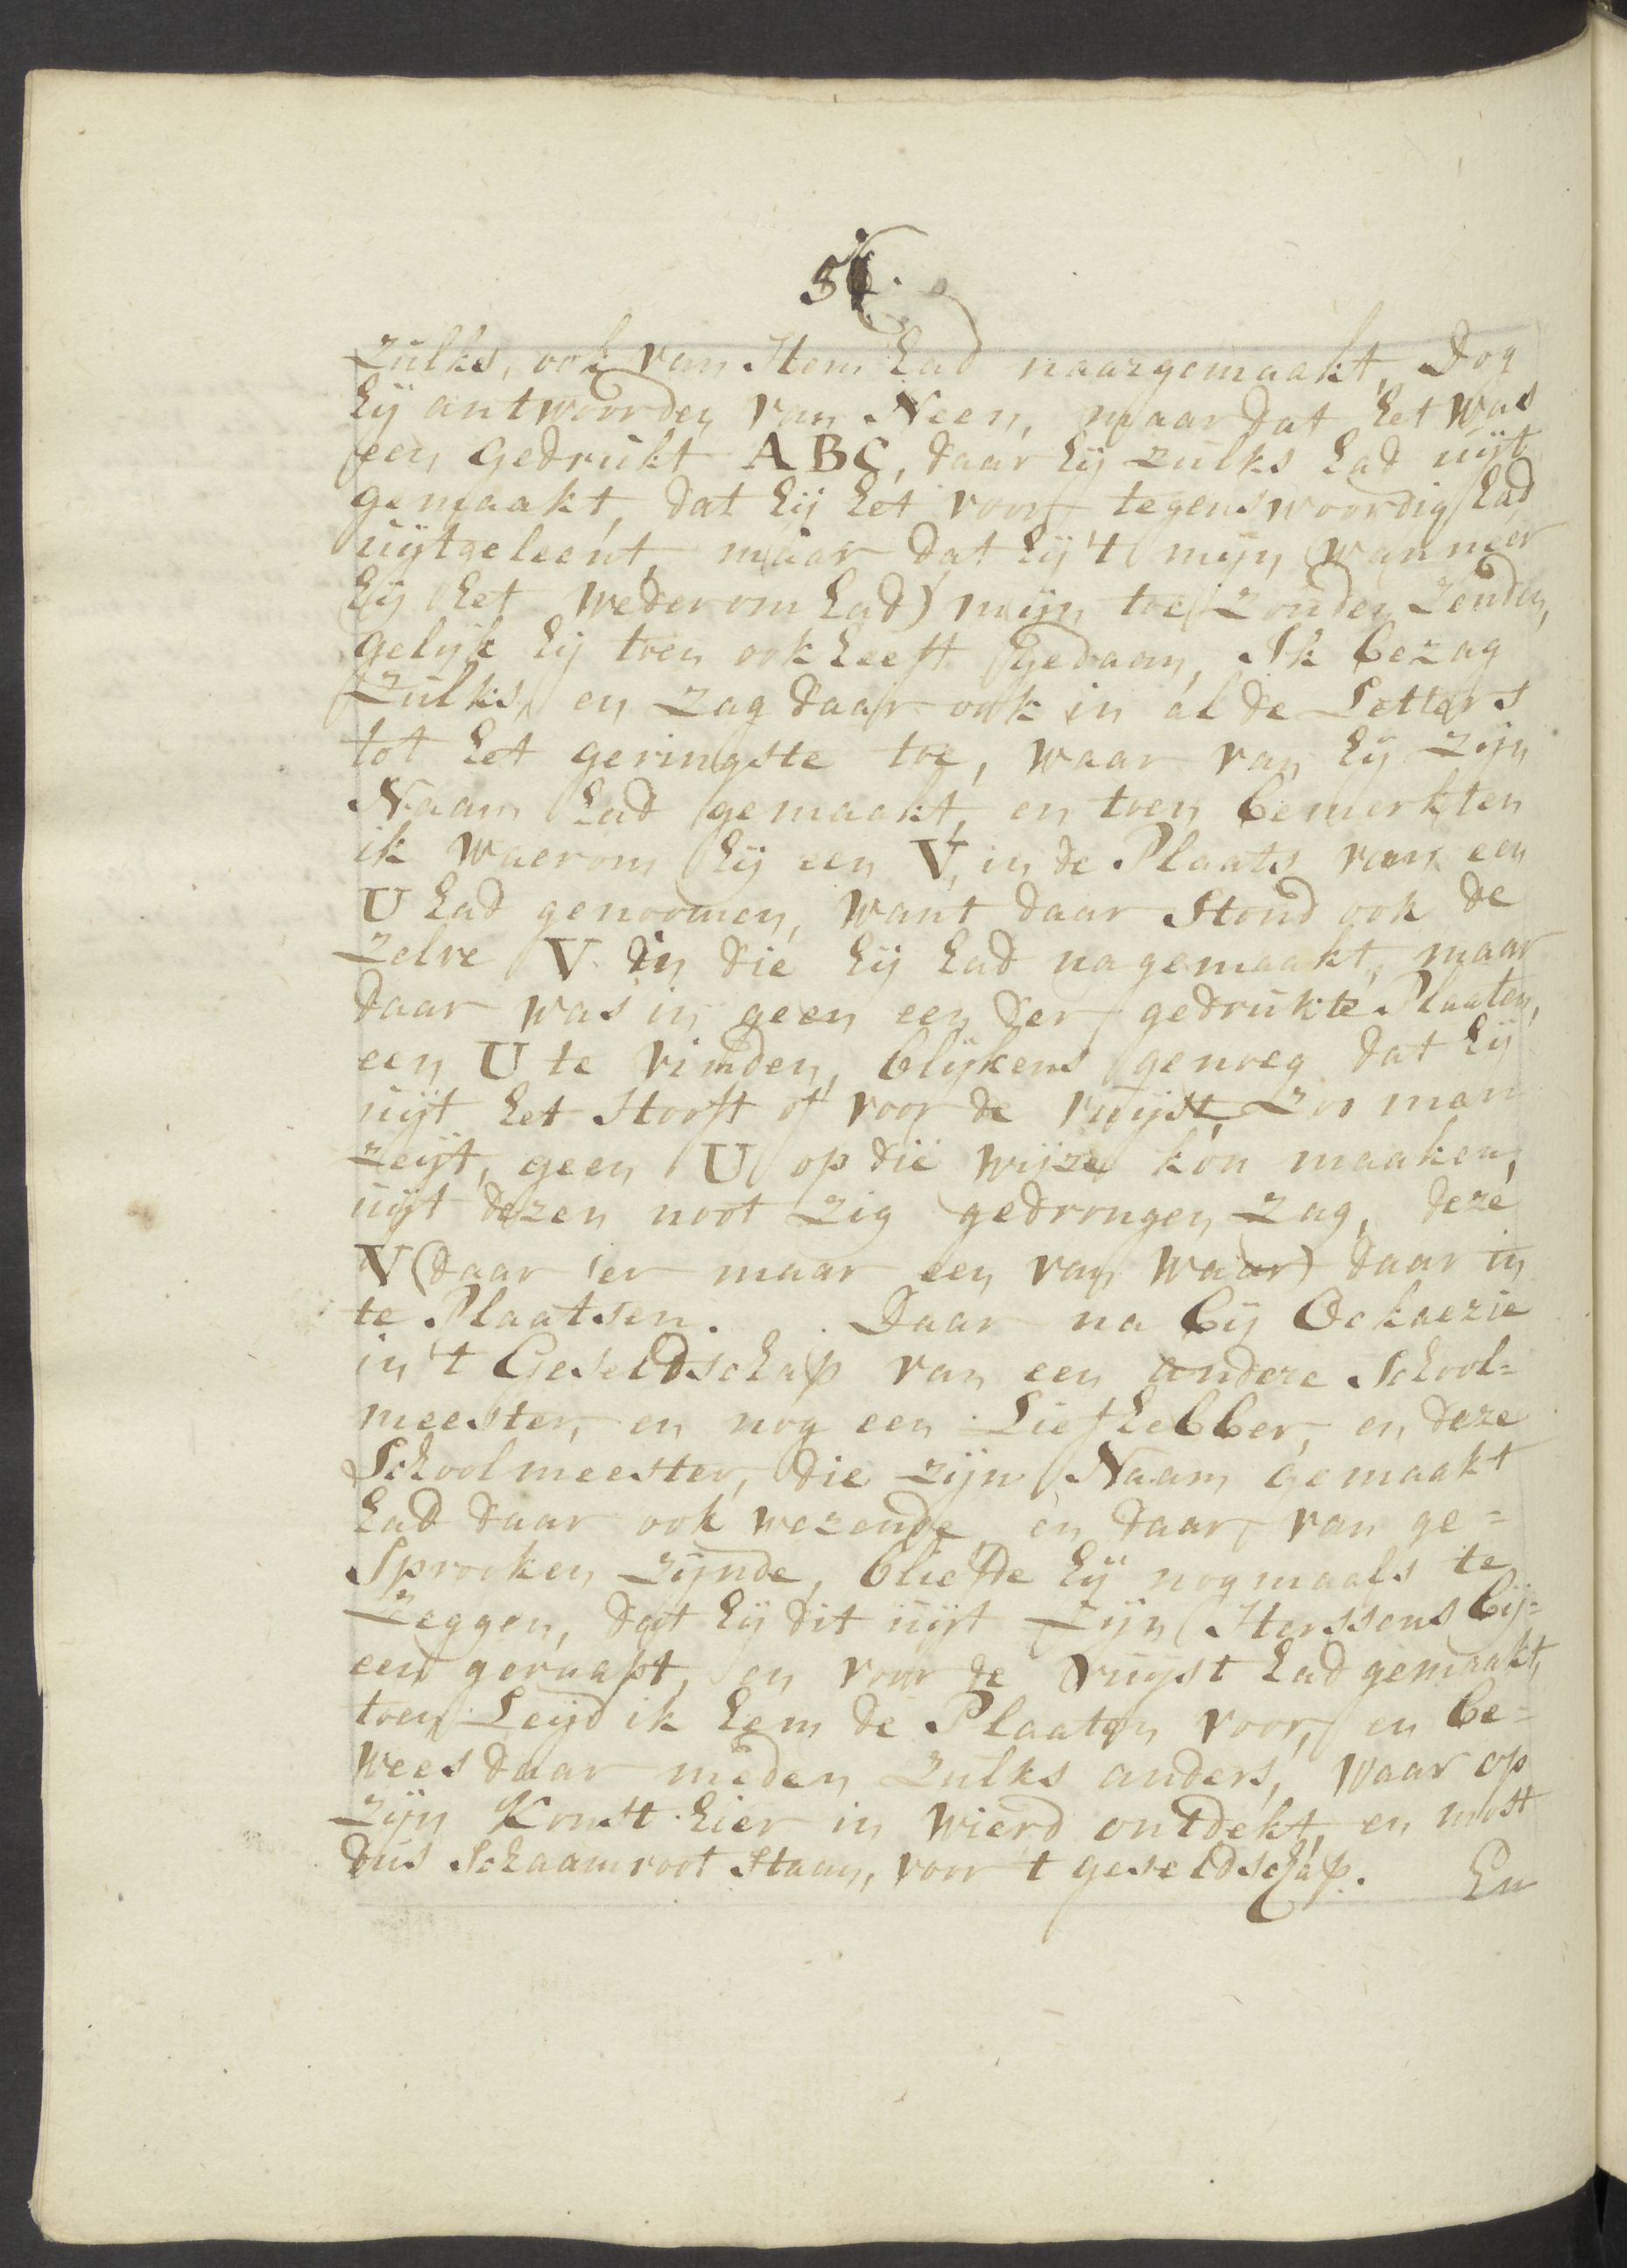 Zulks, ook van Hem had naargemaakt, Dog
hij antwoorden van Neen, maar dat het was
een Gedrukt ABC, daar hij zulks had uijt
gemaakt, dat hij het voor tegenswoordig had
uijtgeleent, maar dat hij 't mijn (wanneer
hij het wederom had) mijn toe zouden Zenden,
gelijk hij toen ook heeft Gedaan, Ik bezag
Zulks, en zag daar ook in al de Letters
tot het geringste toe, waar van hij zijn
Naam had gemaakt, en toen bemerkten
ik waerom hij een V, in de Plaats van een
U had genoomen, want daar Stond ook de
zelve V in die hij had nagemaakt, maar
daar was in geen een der gedrukte Plaaten,
een U te vinden, blijkens genoeg dat hij
uijt het Hooft of voor de vuijst, zoo man
zeijt, geen U op die wijze kon maaken,
uijt dezen noot zig gedrongen zag, deze
V (daar er maar een van waar) daar in
te Plaatsen. Daar na bij Ockaezie
in 't Geseldschap van een andere School=
meester, en nog een Liefhebber, en deze
Schoolmeester, die zijn Naam gemaakt
had daar ook wezende, en daar van ge=
Sprooken zijnde, bliefde hij nogmaals te
Zeggen, dat hij dit uijt Zijn Herssens bij=
een geraapt, en voor de vuijst had gemaakt,
toen Leijd ik hem de Plaaten voor, en be=
wees daar meden zulks anders, waar op
zijn Konst hier in wierd ontdekt, en most
dus Schaamroot Staan, voor 't geseldschap. En